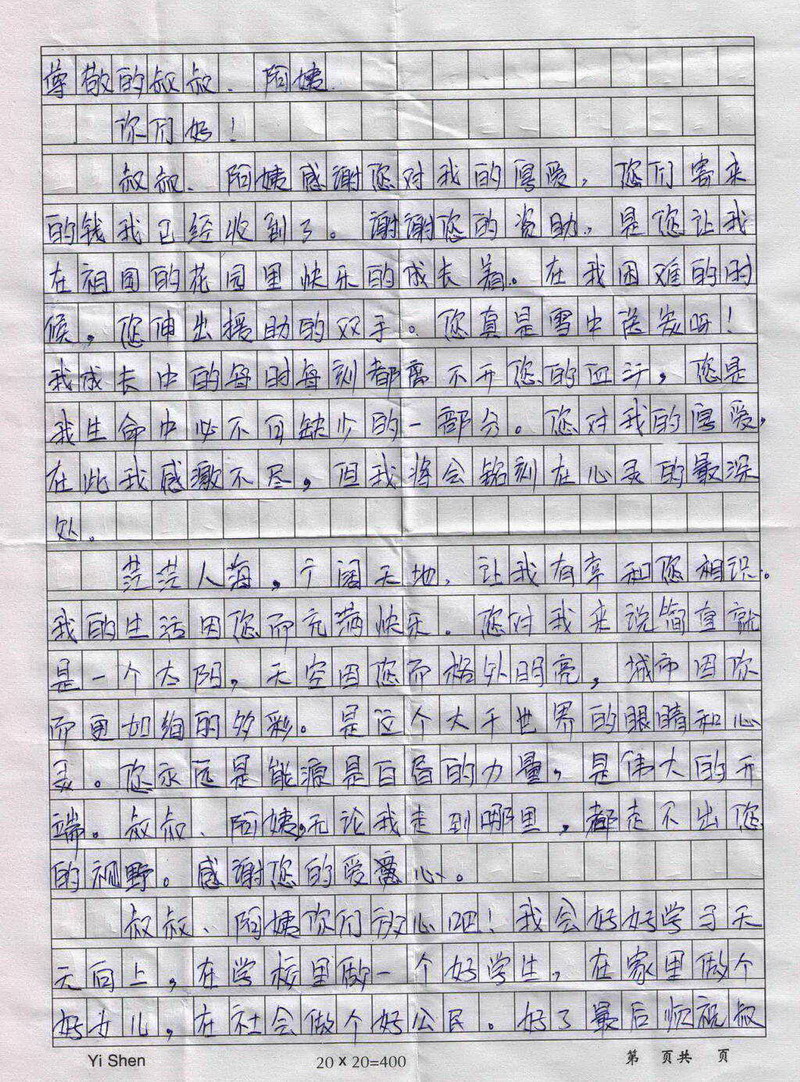 尊敬的叔叔、阿姨
你们好！
叔叔、阿姨感谢您对我的厚爱，您们寄来
的钱我已经收到了。谢谢您的资助，是您让我
在祖国的花园里快乐的成长着。在我困难的时
候，您伸出援助的双手。您真是雪中送炭呀！
我成长中的每时每刻都离不开您的血汗，您是
我生命中必不可缺少的一部分。您对我的厚爱，
在此我感激不尽，但我将会铭刻在心灵的最深
处。
茫茫人海，广阔天地，让我有幸和您相识。
我的生活因您而充满快乐。您对我来说简直就
是一个太阳，天空因您而格外明亮，城市因你
而更加绚的多彩。是这个大千世界的眼睛和心
灵。您永远是能源是白昼的力量，是伟大的开
端。叔叔、阿姨，无论我走到哪里，都走不出您
的视野。感谢您的爱心。
叔叔、阿姨你们放心吧！我会好好学习天
天向上，在学校里做一个好学生，在家里做个
好女儿，在社会做个好公民。好了最后倾祝叔
Yi Shen 20×20=400 第 页共 页